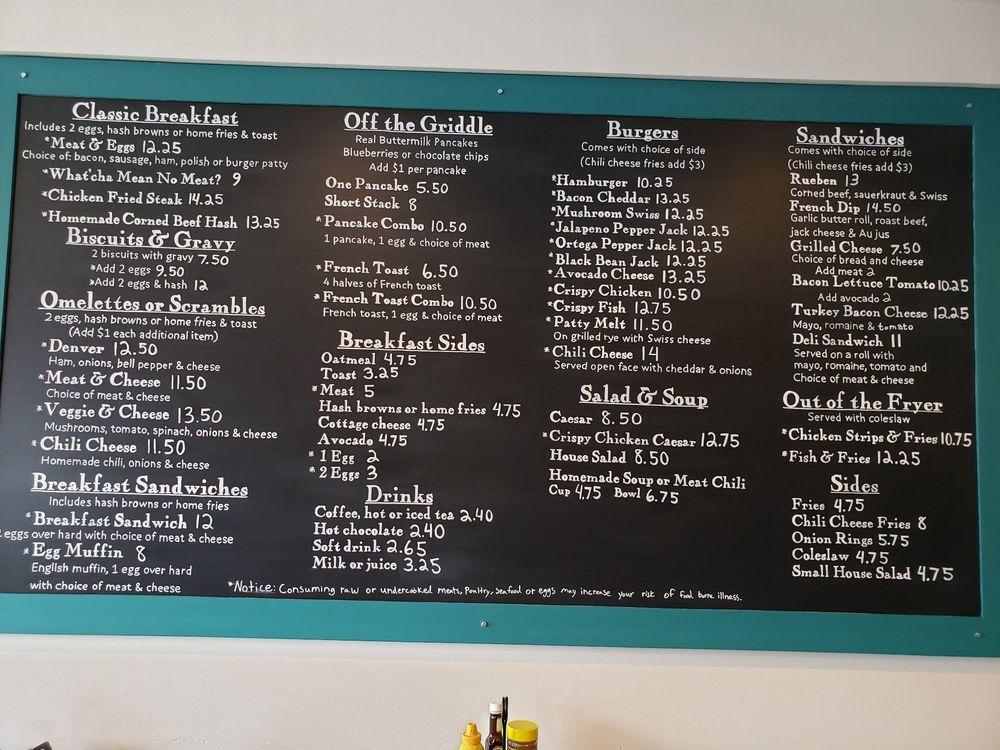 Classic Breakfast
Includes 2 eggs, hash browns or home fries & toast
*Meat & Eggs 12.25
Choice of: bacon, sausage, ham, polish or burger patty
*What'cha Mean No Meat? 9
*Chicken Fried Steak 14.25
*Homemade Corned Beef Hash 13.25
Biscuits & Gravy
2 biscuits with gravy 7.50
*Add 2 eggs 9.50
*Add 2 eggs & hash 12
Omelettes or Scrambles
2 eggs, hash browns or home fries & toast
(Add $1 each additional item)
*Denver 12.50
Ham, onions, bell pepper & cheese
*Meat & Cheese 11.50
Choice of meat & cheese
*Veggie & Cheese 13.50
Mushrooms, tomato, spinach, onions & cheese
*Chili Cheese 11.50
Homemade chili, onions & cheese
Breakfast Sandwiches
Includes hash browns or home fries
*Breakfast Sandwich 12
eggs over hard with choice of meat & cheese
*Egg Muffin 8
English muffin, 1 egg over hard
with choice of meat & cheese
Off the Griddle
Real Buttermilk Pancakes
Blueberries or chocolate chips
Add $1 per pancake
One Pancake 5.50
Short Stack 8
*Pancake Combo 10.50
1 pancake, 1 egg & choice of meat
*French Toast 6.50
4 halves of French toast
*French Toast Combo 10.50
French toast, 1 egg & choice of meat
Breakfast Sides
Oatmeal 4.75
Toast 3.25
*Meat 5
Hash browns or home fries 4.75
Cottage cheese 4.75
Avocado 4.75
*1 Egg 2
*2 Eggs 3
Drinks
Coffee, hot or iced tea 2.40
Hot chocolate 2.40
Soft drink 2.65
Milk or juice 3.25
Burgers
Comes with choice of side
(Chili cheese fries add $3)
*Hamburger 10.25
*Bacon Cheddar 13.25
*Mushroom Swiss 12.25
*Jalapeno Pepper Jack 12.25
*Ortega Pepper Jack 12.25
*Black Bean Jack 12.25
*Avocado Cheese 13.25
*Crispy Chicken 10.50
*Crispy Fish 12.75
*Patty Melt 11.50
On grilled rye with Swiss cheese
*Chili Cheese 14
Served open face with cheddar & onions
Salad & Soup
Caesar 8.50
*Crispy Chicken Caesar 12.75
House Salad 8.50
Homemade Soup or Meat Chili
Cup 4.75 Bowl 6.75
Sandwiches
Comes with choice of side
(Chili cheese fries add $3)
Rueben 13
Corned beef, sauerkraut & Swiss
French Dip 14.50
Garlic butter roll, roast beef,
jack cheese & Au jus
Grilled Cheese 7.50
Choice of bread and cheese
Add meat 2
Bacon Lettuce Tomato 10.25
Add avocado 2
Turkey Bacon Cheese 12.25
Mayo, romaine & tomato
Deli Sandwich 11
Served on a roll with
mayo, romaine, tomato and
Choice of meat & cheese
Out of the Fryer
Served with coleslaw
*Chicken Strips & Fries 10.75
*Fish & Fries 12.25
Sides
Fries 4.75
Chili Cheese Fries 8
Onion Rings 5.75
Coleslaw 4.75
Small House Salad 4.75
*Notice: Consuming raw or undercooked meats, Poultry, Seafood or eggs may increase your risk of food borne illness.